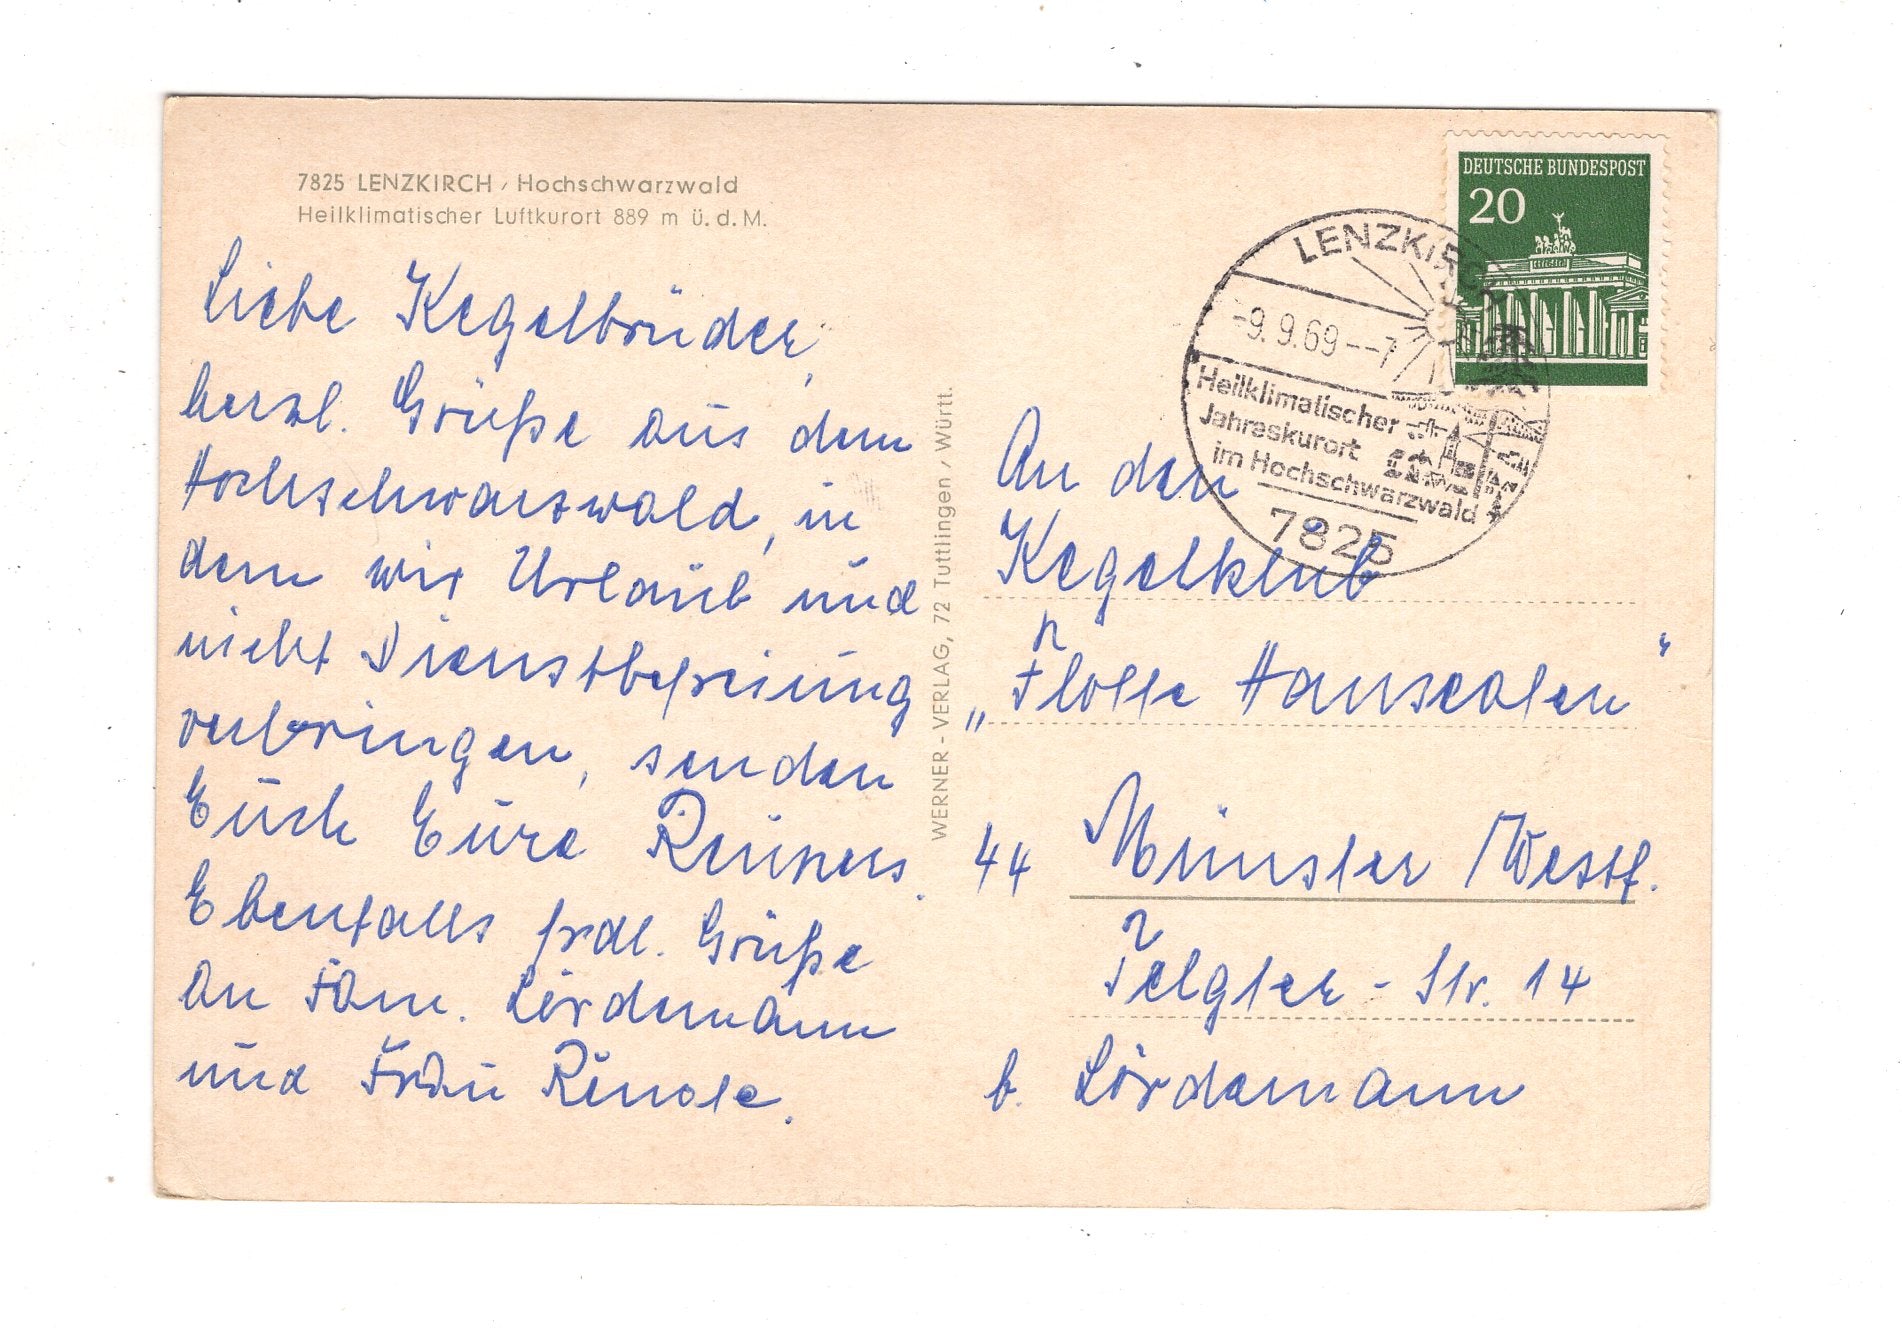 7825 LENZKIRCH / Hochschwarzwald
Heilklimatischer Luftkurort 889 m ü. d. M.
Liebe Kegelbrüder,
herzl. Grüße aus dem
Hochschwarzwald, in
dem wir Urlaub und
nicht Dienstbefreiung
verbringen, senden
Euch Eure
Ebenfalls frdl. Grüße
an Fam. Lördemann
und Frau
WERNER-VERLAG, 72 Tuttlingen / Württ.
DEUTSCHE BUNDESPOST
20
LENZKIRCH
-9.9.69--7
Heilklimatischer
Jahreskurort
im Hochschwarzwald
7825
An den
Kegelklub
„Flotte Hanseaten"
44 Münster /Westf.
Telgter-Str. 14
b. Lördemann